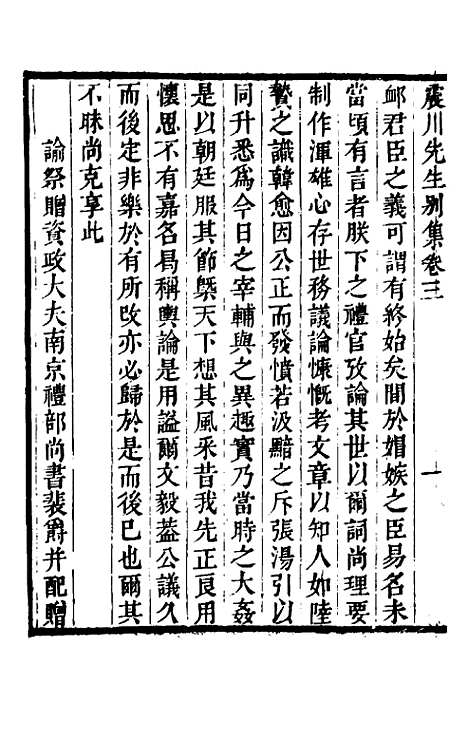 震川先生別集卷三
一
卹君臣之義可謂有終始矣間於媢嫉之臣易名未
當頃有言者朕下之禮官攷論其世以爾詞尚理要
制作渾雄心存世務議論慷慨考文章以知人如陸
贄之識韓愈因公正而發憤若汲黯之斥張湯引以
同升悉爲今日之宰輔與之異趣實乃當時之大姦
是以朝廷服其節槩天下想其風采昔我先正良用
懷思不有嘉名曷稱輿論是用謚爾文毅葢公議久
而後定非樂於有所改亦必歸於是而後已也爾其
不昧尚克享此
諭祭贈資政大夫南京禮部尚書裴爵并配贈